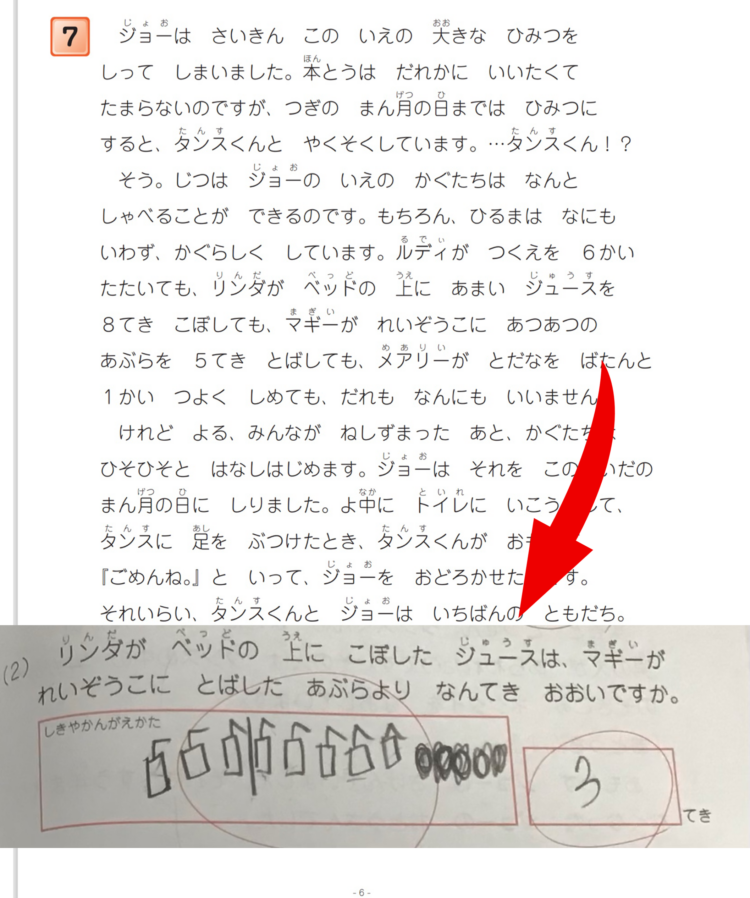 7
ジョーは さいきん この いえの 大きな ひみつを
しって しまいました。本とうは だれかに いいたくて
たまらないのですが、つぎの まん月の日までは ひみつに
すると、タンスくんと やくそくしています。…タンスくん！？
そう。じつは ジョーの いえの かぐたちは なんと
しゃべることが できるのです。もちろん、ひるまは なにも
いわず、かぐらしく しています。ルディが つくえを 6かい
たたいても、リンダが ベッドの 上に あまい ジュースを
8てき こぼしても、マギーが れいぞうこに あつあつの
あぶらを 5てき とばしても、メアリーが とだなを ばたんと
1かい つよく しめても、だれも なんにも いいません
けれど よる、みんなが ねしずまった あと、かぐた
ひそひそと はなしはじめます。ジョーは それを この いだの
まん月の日に しりました。よ中に トイレに いこう て、
タンスに 足を ぶつけたとき、タンスくんが お
『ごめんね。』と いって、ジョーを おどろかせた す。
それいらい、タンスくんと ジョーは いちばんの ともだち。
(2) リンダが ベッドの 上に こぼした ジュースは、マギーが
れいぞうこに とばした あぶらより なんてき おおいですか。
しきやかんがえかた
3 てき
- 6 -